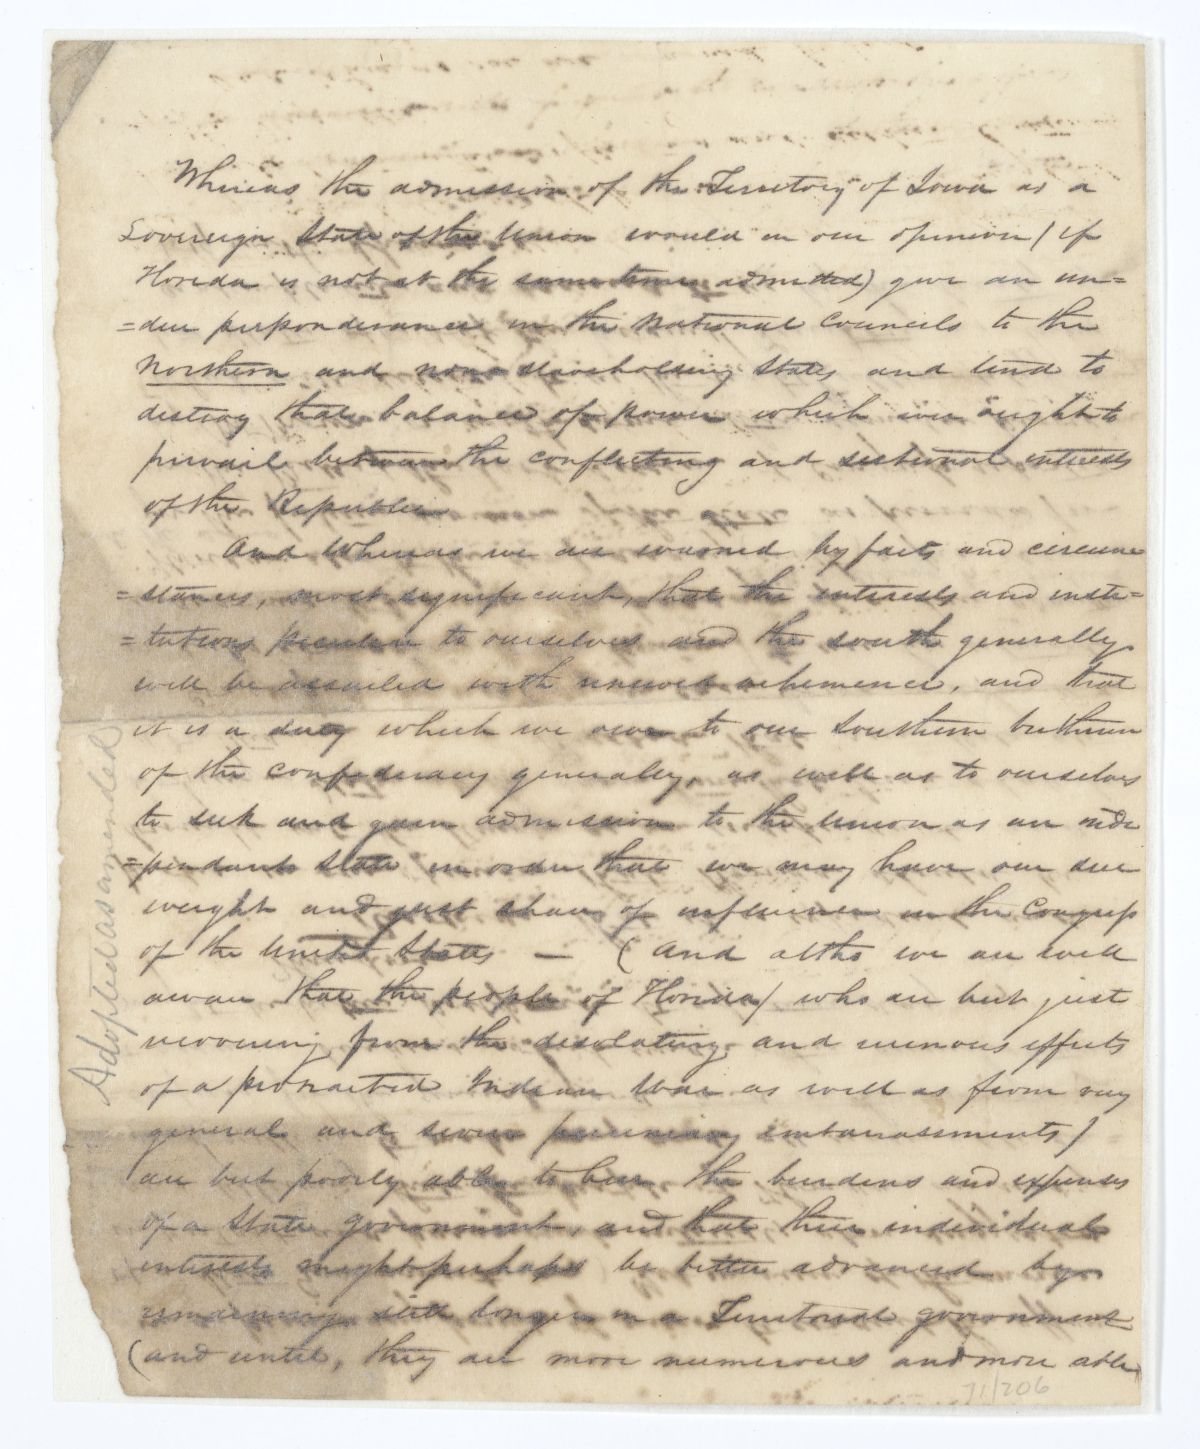 Whereas the admission of the Territory of Iowa as a
Sovereign State of the Union would in our opinion (if
Florida is not at the same time admitted) give an un=
=due perponderance in the National Councils to the
Northern and non slaveholding States and tend to
destroy that balance of power which ever ought to
prevail between the conflicting and sectional interests
of the Republic
And Whereas we are warned by facts and circum
=stances, most significant, that the interests and insti=
=tutions peculiar to ourselves and the south generally
will be assailed with renewed vehemence, and that
it is a duty which we owe to our Southern brethren
of the confederacy generally, as well as to ourselves
to seek and gain admission to the Union as an inde
=pendant State in order that we may have our due
weight and just share of influence in the Congress
of the United States — (And altho we are well
aware that the people of Florida / who are but just
recovering from the desolating and ruinous effects
of a protracted Indian War as well as from very
general and severe pecuniary embarrassments)
are but poorly able to bear the burdens and expenses
of a State government, and that their individual
interests might perhaps be better advanced by
remaining still longer in a Territorial government
(and until, they are more numerous and more able
Adopted as amended
71/206